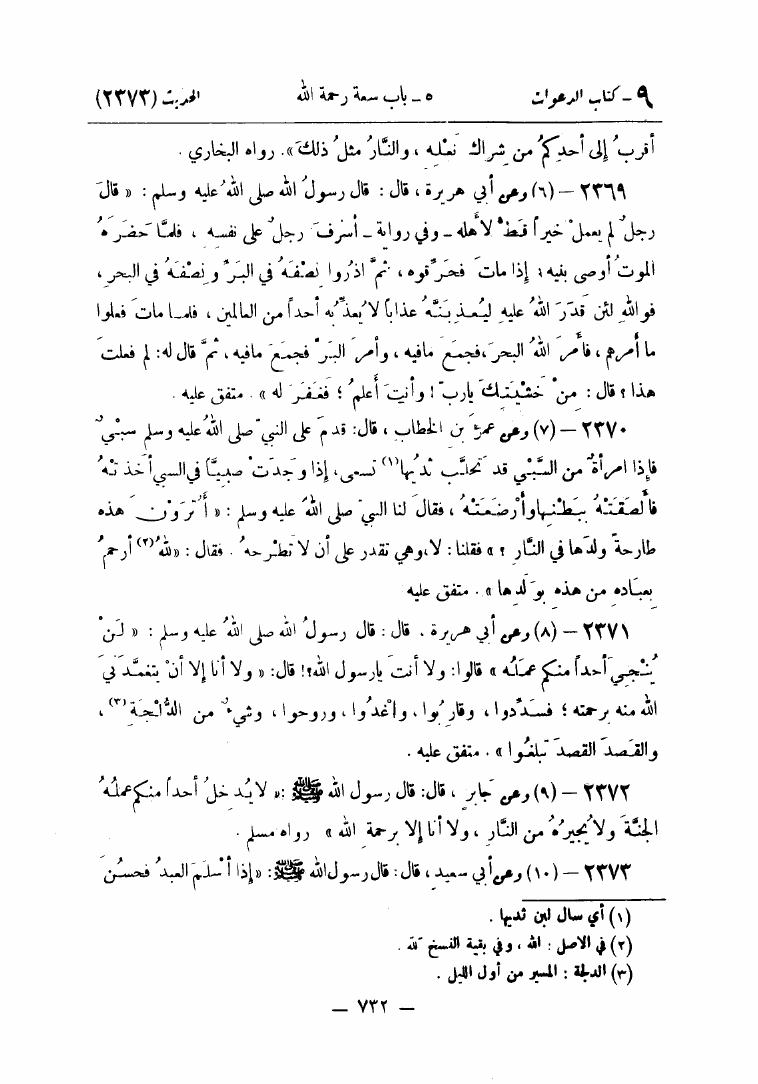 ٩ – كتاب الدعوات ٥ – باب سعة رحمة الله الحديث (٢٣٧٣)
أقربُ إلى أحدِكمُ من شِراك نَعْلِه ، والنَّارُ مثلُ ذلكَ». رواه البخاري .
٢٣٦٩ – (٦) وعن أبي هريرة ، قال : قال رسولُ الله صلى اللهُ عليه وسلم : « قالَ
رجلٌ لم يعملْ خيراً قَطُّ لأهله ــ وفي رواية ــ أسْرفَ رجلٌ على نفسِه ، فلمَّا حَضَرَهُ
الموتُ أوصى بنيه : إذا ماتَ فَحَرِّقوه ، ثمَّ اذْروا نِصْفَهُ في البَرِّ ونِصْفَهُ في البحرِ ،
فواللهِ لئن قَدَرَ اللهُ عليهِ ليُعذِّبَنَّهُ عذاباً لا يُعذِّبُه أحداً من العالمين ، فلمَّا ماتَ فعلوا
ما أمرهم ، فأمرَ اللهُ البحرَ ، فجمَعَ مافيه ، وأمرَ البَرَّ فجمَعَ مافيه ، ثمَّ قال له: لم فعلتَ
هذا ؟ قال : مِنْ خَشْيَتِكَ ياربِّ ! وأنتَ أعلمُ ؛ فَغَفَرَ له » . متفق عليه .
٢٣٧٠ – (٧) وعن عمرَ بنِ الخطاب ، قال: قدمَ على النبيِّ صلى اللهُ عليه وسلم سبْيٌ
فإذا امرأةٌ من السَّبْيِ قد تَحَلَّبَ ثديُها(١) تسعى، إذا وَجَدَتْ صبيّاً في السبي أخذتْهُ
فألصَقَتْهُ ببَطْنِها وأرْضَعَتْهُ ، فقالَ لنا النبيّ صلى اللهُ عليه وسلم : « أتَرَوْنَ هذه
طارحةً ولدَها في النَّارِ ؟ » فقلنا : لا، وهي تقدر على أن لا تَطْرحهُ . فقال : «للهُ(٢) أرحمُ
بعبادِه من هذه بوَلَدِها » . متفق عليه
٢٣٧١ – (٨) وعن أبي هريرة ، قال : قال رسولُ الله صلى اللهُ عليه وسلم : « لنْ
يُنْجِيَ أحداً منكم عمَلُه » قالوا: ولا أنتَ يارسول الله؟! قال: « ولا أنا إلا أنْ يتغمَّدَنيَ
الله منه برحمته ؛ فسَدِّدوا ، وقارِبُوا ، واغْدُوا ، وروحوا ، وشيءٌ من الدُّلْجَةِ(٣) ،
والقَصدَ القصدَ تبلغُوا » . متفق عليه .
٢٣٧٢ – (٩) وعن جابرٍ ، قال: قال رسول الله ﷺ : « لا يُدخلُ أحداً منكم عملُهُ
الجنَّةَ ولا يُجيرُهُ من النَّارِ ، ولا أنا إلا برحمةِ الله » رواه مسلم .
٢٣٧٣ – (١٠) وعن أبي سعيد ، قال : قال رسول الله ﷺ : « إذا أسْلَمَ العبدُ فحسُنَ
(١) أي سال لبن ثديها .
(٢) في الاصل : الله ، وفي بقية النسخ لله .
(٣) الدلجة : المسير من أول الليل .
– ٧٣٢ –